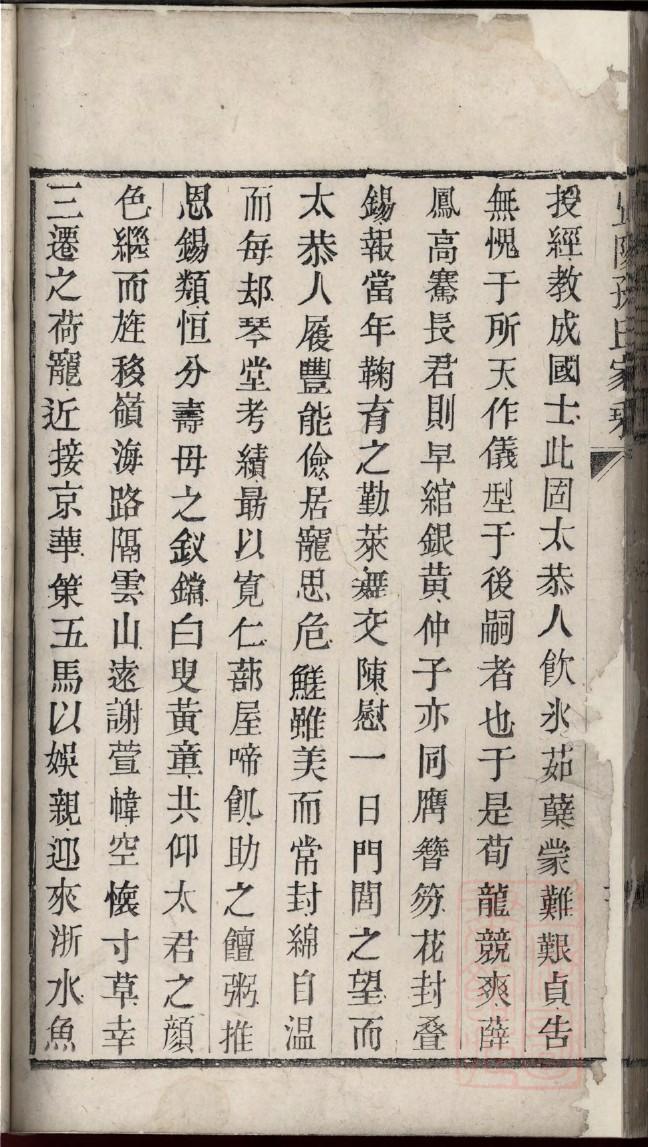 陽孫氏家
授經教成國士此固太恭人飲氷茹蘗蒙難艱貞告
無愧于所天作儀型于後嗣者也于是荀龍競爽薛
鳳高騫長君則早綰銀黃仲子亦同膺簪笏花封叠
錫報當年鞠育之勤萊舞交陳慰一日門閭之望而
太恭人履豐能儉居寵思危鮓雖美而常封綿自温
而每却琴堂考績最以寛仁蔀屋啼飢助之饘粥推
恩錫類恒分壽母之釵鐺白叟黃童共仰太君之顔
色纔而旌移嶺海路隔雲山遠謝萱幃空懷寸草幸
三遷之荷寵近接京華策五馬以娛親迎來浙水魚